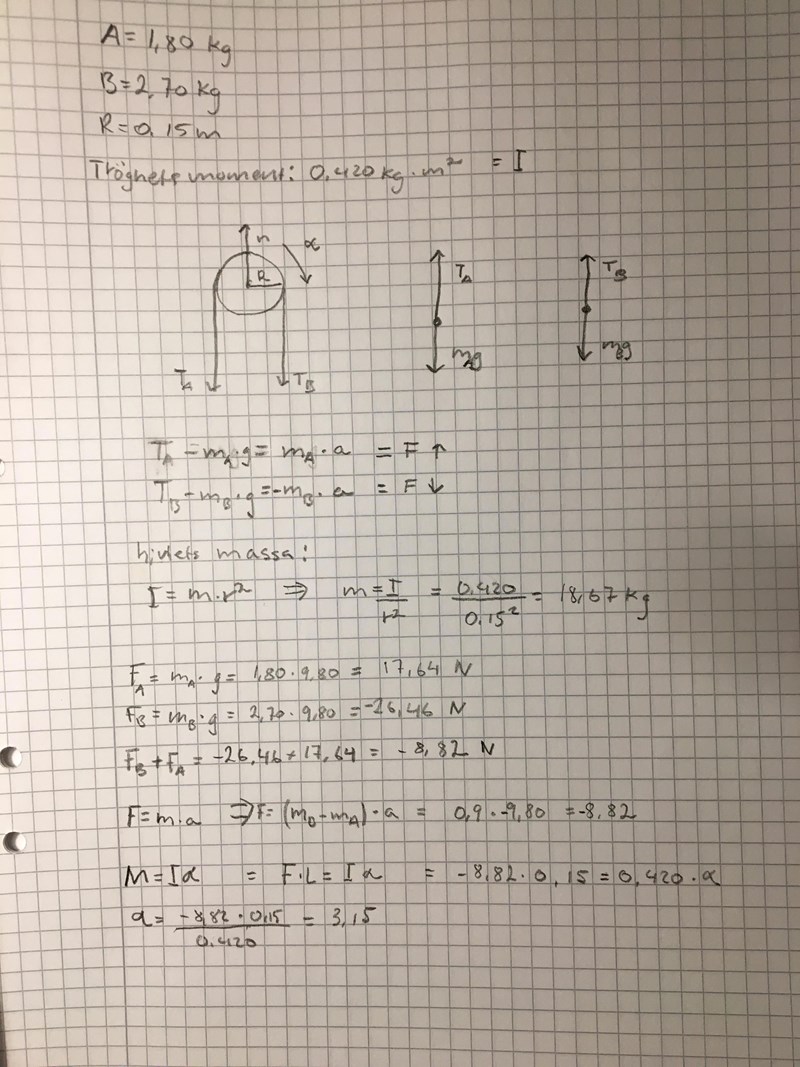 A = 1,80 kg
B = 2,70 kg
R = 0,15 m
Tröghets moment: 0,420 kg · m² = I
n α
R
T_A T_B
T_A
m_A g
T_B
m_B g
T_A - m_A · g = m_A · a = F ↑
T_B - m_B · g = -m_B · a = F ↓
hjulets massa:
I = m · r² ⇒ m = I/r² = 0,420/0,15² = 18,67 kg
F_A = m_A · g = 1,80 · 9,80 = 17,64 N
F_B = m_B · g = 2,70 · 9,80 = -26,46 N
F_B + F_A = -26,46 + 17,64 = -8,82 N
F = m · a ⇒ F = (m_B - m_A) · a = 0,9 · -9,80 = -8,82
M = Iα = F · L = Iα = -8,82 · 0,15 = 0,420 · α
α = -8,82 · 0,15/0,420 = 3,15